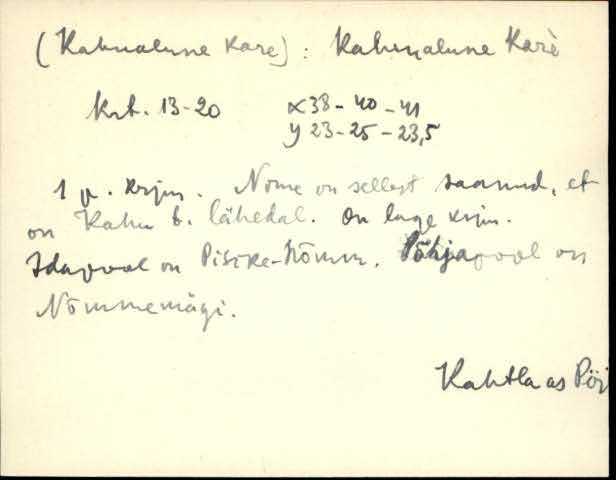 (Kahualune Kare) : Kahuņalune Karè
krt. 13-20 x 38 - 40 - 41
y 23 - 25 - 23,5
1 p. krjm. Nime on sellest saanud, et
on Kahu t. lähedal. On lage krjm.
Idapool on Pisike-Nõmm. Põhjapool on
Nõmmemägi.
Kahtla as Pöi